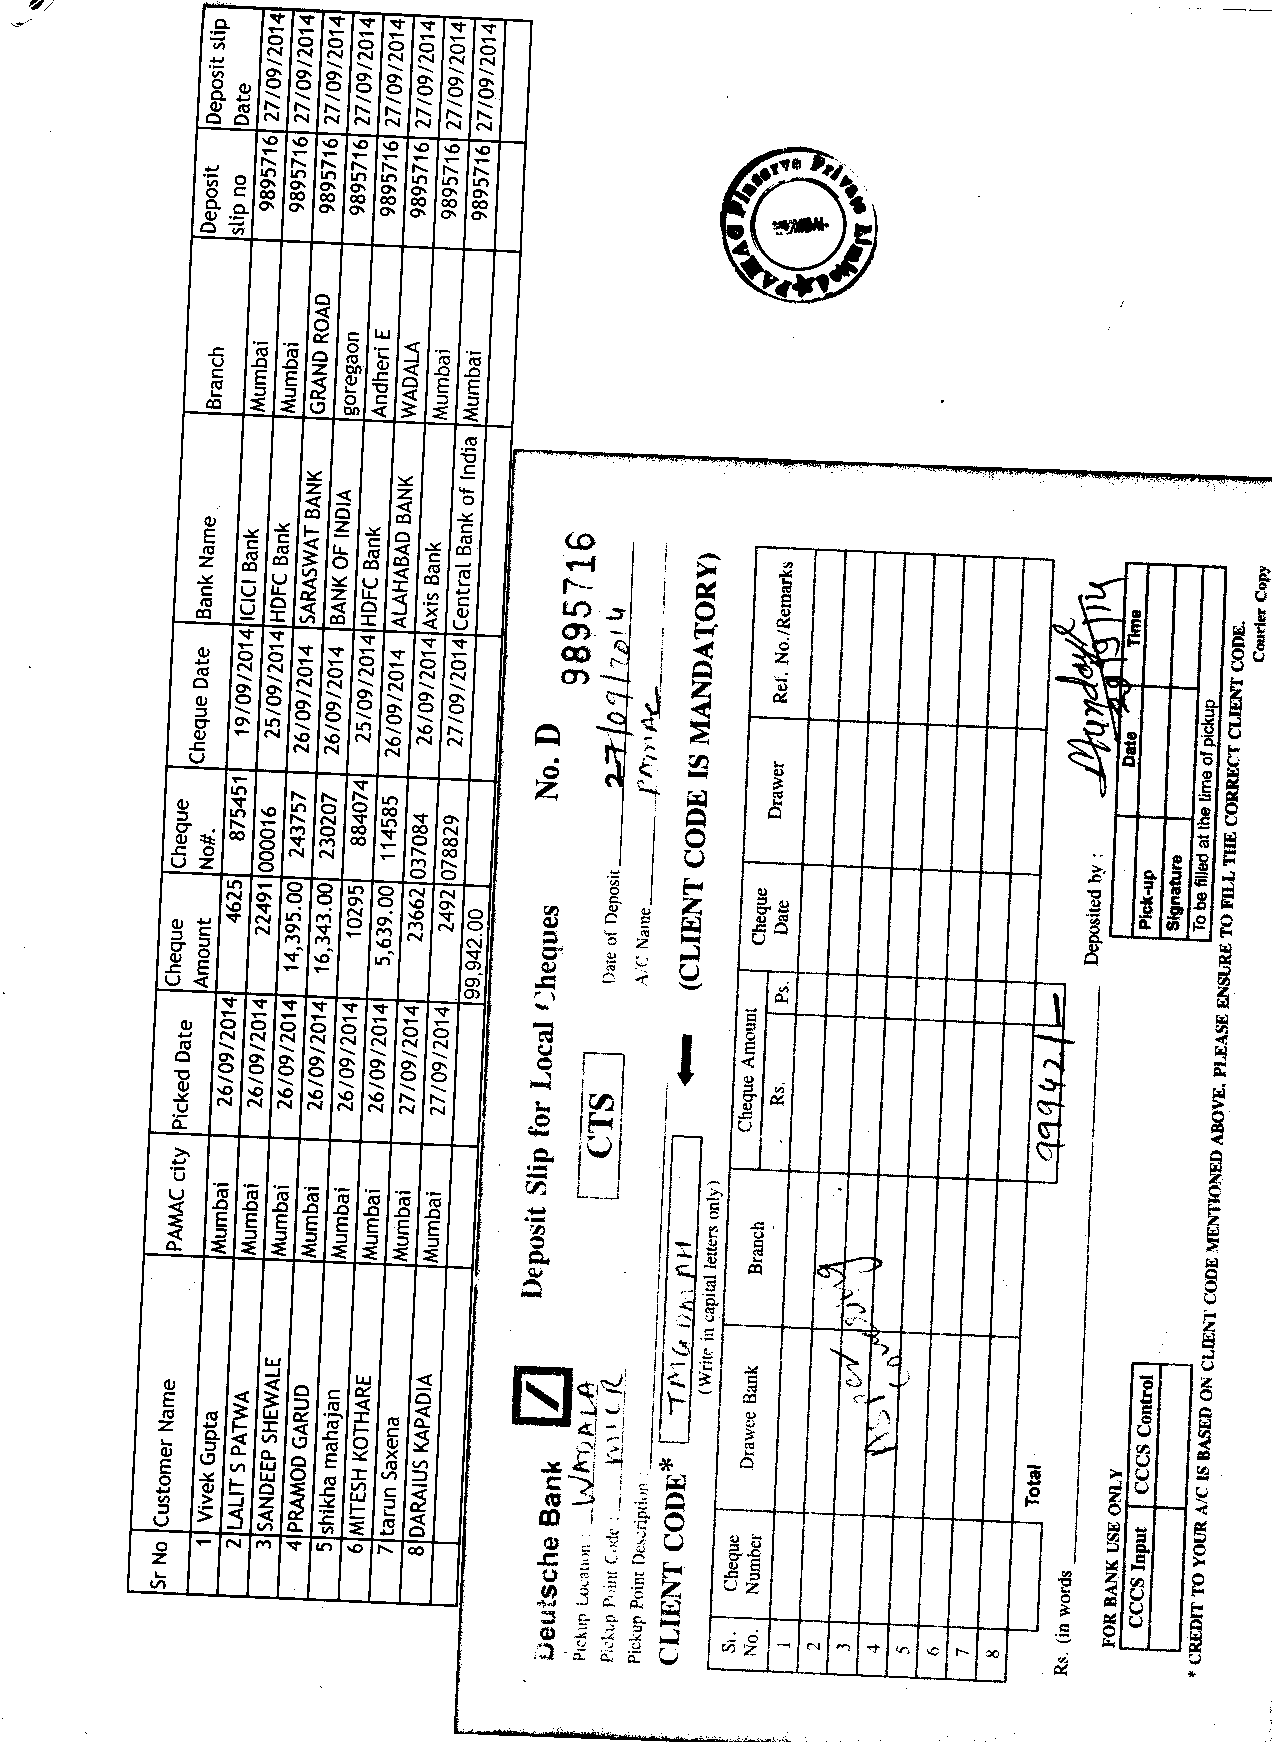 Sr No Customer Name PAMAC city Picked Date Cheque Amount Cheque No#. Cheque Date Bank Name Branch Deposit slip no Deposit slip Date
1 Vivek Gupta Mumbai 26/09/2014 4625 875451 19/09/2014 ICICI Bank Mumbai 9895716 27/09/2014
2 LALIT S PATWA Mumbai 26/09/2014 22491 000016 25/09/2014 HDFC Bank Mumbai 9895716 27/09/2014
3 SANDEEP SHEWALE Mumbai 26/09/2014 14,395.00 243757 26/09/2014 SARASWAT BANK GRAND ROAD 9895716 27/09/2014
4 PRAMOD GARUD Mumbai 26/09/2014 16,343.00 230207 26/09/2014 BANK OF INDIA goregaon 9895716 27/09/2014
5 shikha mahajan Mumbai 26/09/2014 10295 884074 25/09/2014 HDFC Bank Andheri E 9895716 27/09/2014
6 MITESH KOTHARE Mumbai 26/09/2014 5,639.00 114585 26/09/2014 ALAHABAD BANK WADALA 9895716 27/09/2014
7 tarun Saxena Mumbai 27/09/2014 23662 037084 26/09/2014 Axis Bank Mumbai 9895716 27/09/2014
8 DARAIUS KAPADIA Mumbai 27/09/2014 2492 078829 27/09/2014 Central Bank of India Mumbai 9895716 27/09/2014
99,942.00
PAMAC Finserve Private Limited
MUMBAI
Deutsche Bank Deposit Slip for Local Cheques No. D 9895716
Pickup Location : WADALA CTS Date of Deposit 27/09/2014
Pickup Point Code : MICR A/C Name PAMAC
Pickup Point Description
CLIENT CODE* (CLIENT CODE IS MANDATORY)
(Write in capital letters only)
Sr. No. Cheque Number Drawee Bank Branch Cheque Amount Rs. Ps. Cheque Date Drawer Ref. No./Remarks
1
2
3
4
5
6
7
8
Total 99942/-
Rs. (in words Deposited by :
FOR BANK USE ONLY
CCCS Input CCCS Control
Date Time
Pick-up
Signature
To be filled at the time of pickup
* CREDIT TO YOUR A/C IS BASED ON CLIENT CODE MENTIONED ABOVE. PLEASE ENSURE TO FILL THE CORRECT CLIENT CODE.
Courier Copy